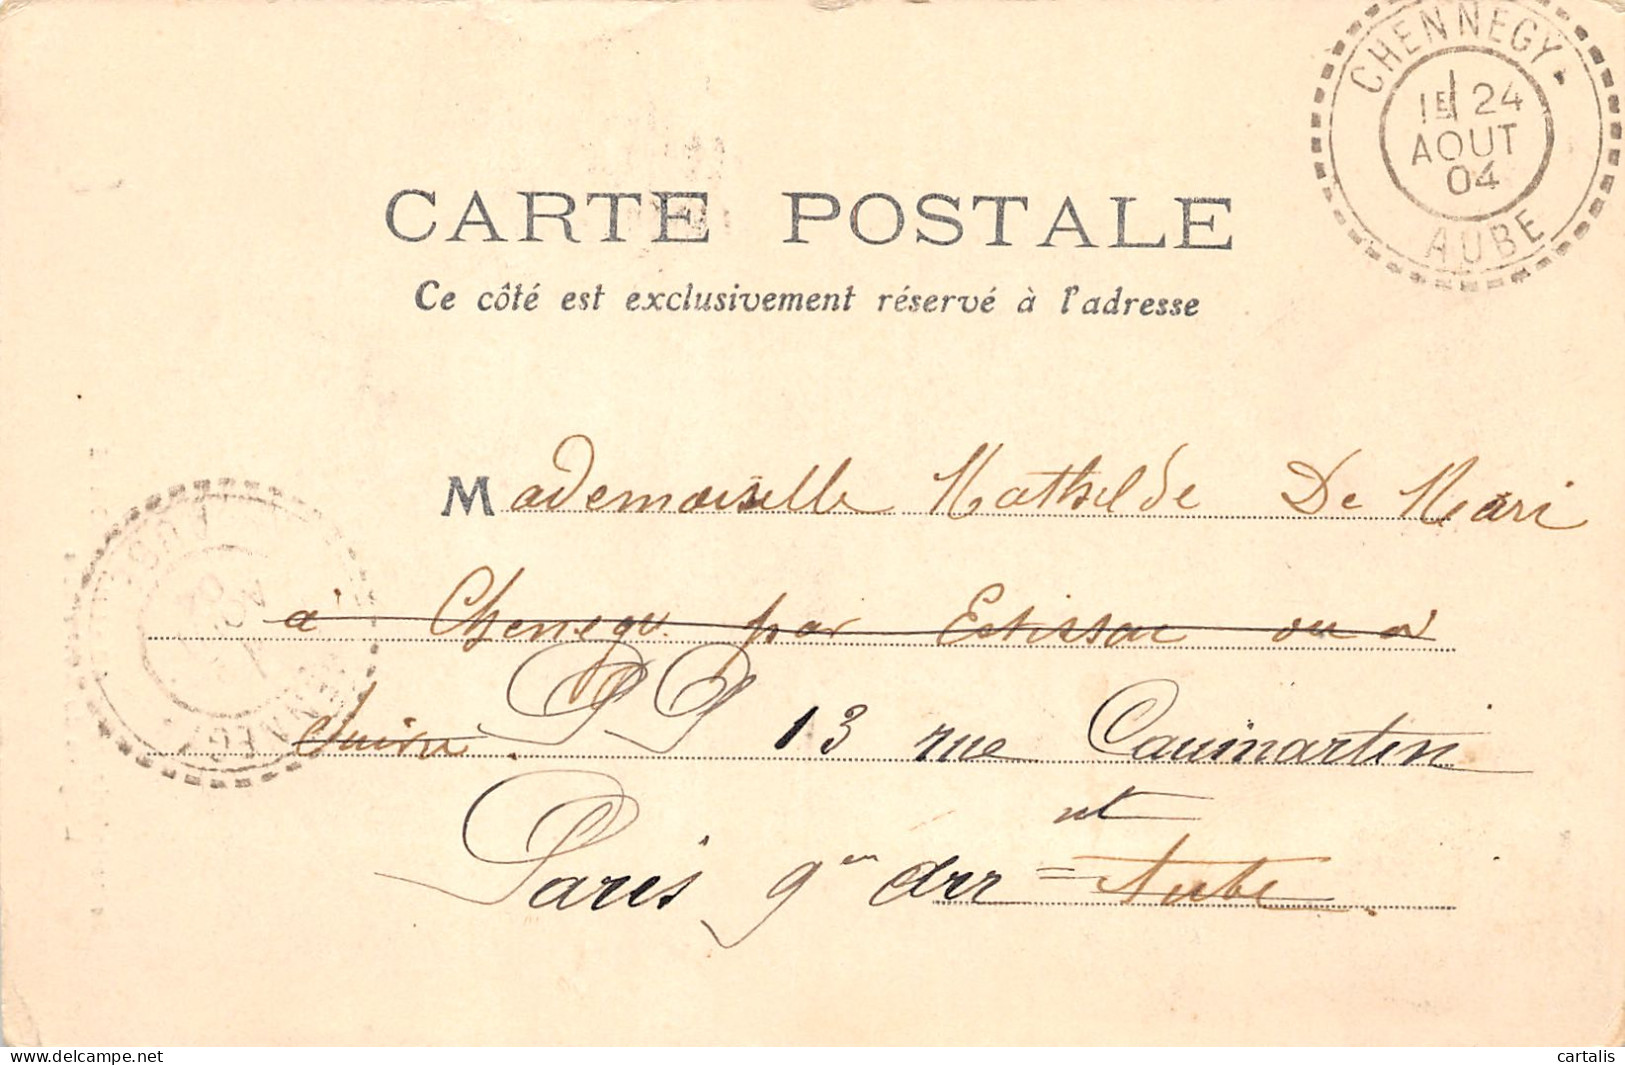 CHENNEGY
1E 24
AOUT
04
AUBE
CARTE POSTALE
Ce côté est exclusivement réservé à l'adresse
Mademoiselle Mathilde De Mari
à Chenegy par Estissac ou à
suivre. 13 rue Caumartin
Paris 9en arr =
Aube.
www.delcampe.net
cartalis